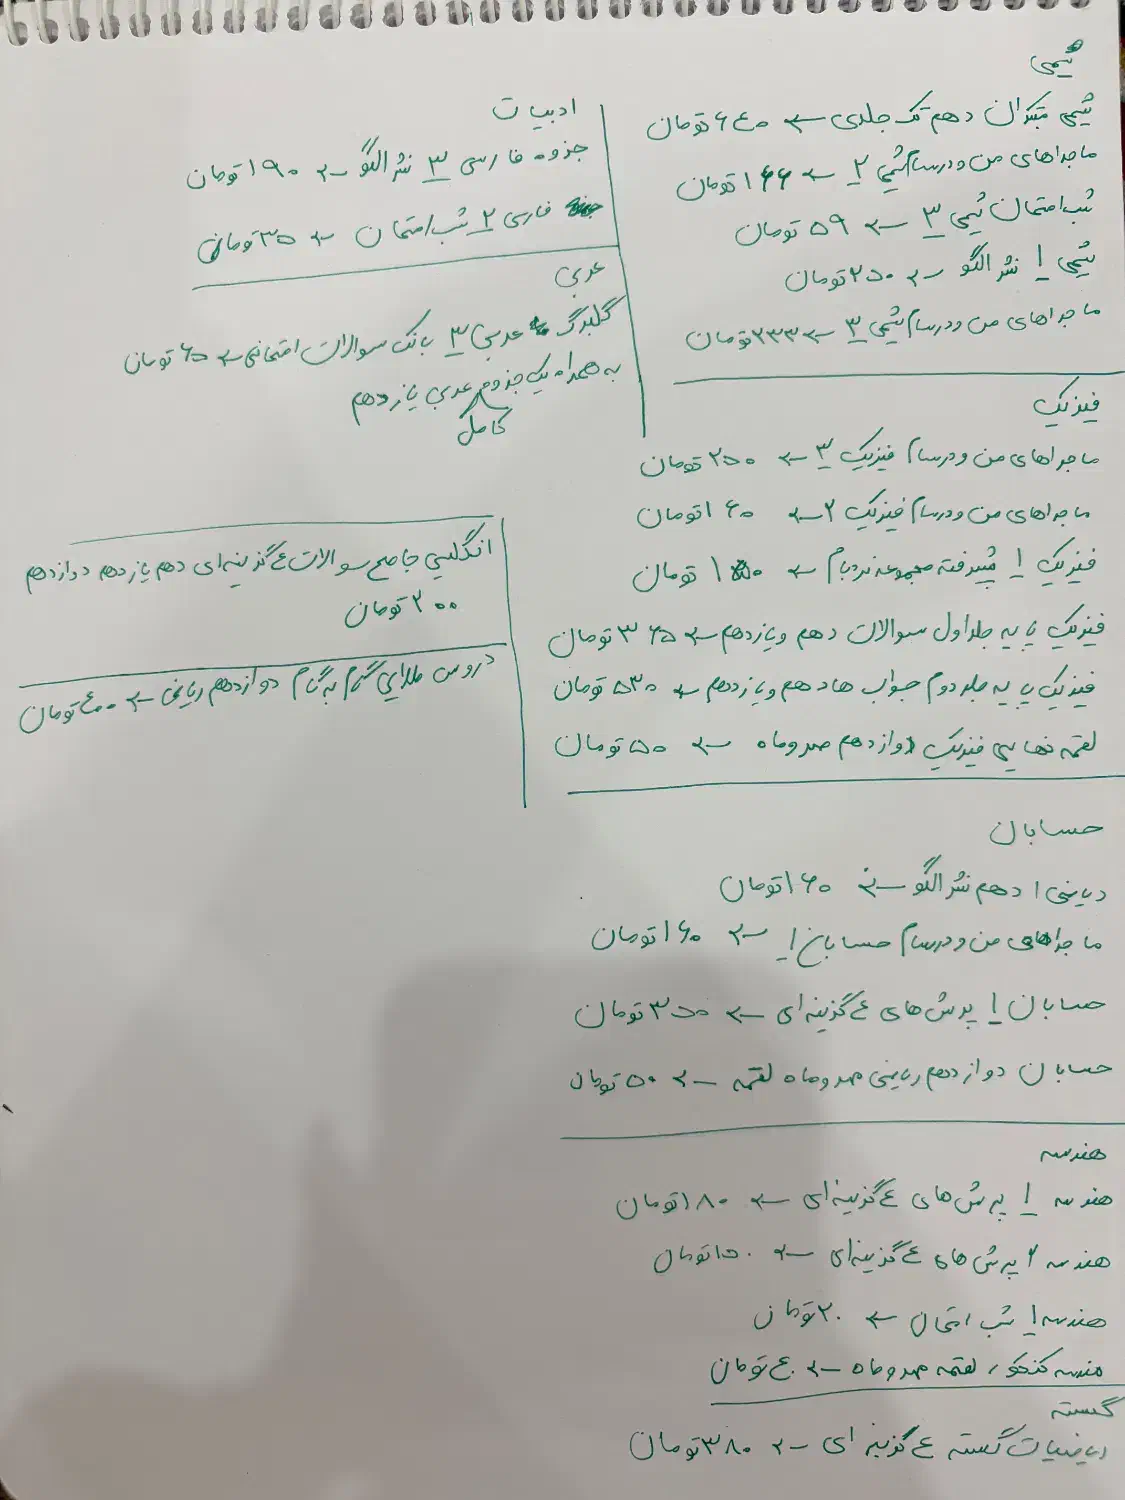 شیمی
شیمی مبتکران دهم تک جلدی ← ۶۴۰ تومان
ماجراهای من و درسام شیمی ۲ ← ۱۶۶ تومان
شب امتحان شیمی ۳ ← ۵۹ تومان
شیمی ۱ نشر الگو ← ۲۵۰ تومان
ماجراهای من و درسام شیمی ۳ ← ۲۳۳ تومان
فیزیک
ماجراهای من و درسام فیزیک ۳ ← ۲۵۰ تومان
ماجراهای من و درسام فیزیک ۲ ← ۱۶۰ تومان
فیزیک ۱ پیشرفته مجموعه نردبام ← تومان
فیزیک پایه جلد اول سوالات دهم و یازدهم ← ۳۶۵ تومان
فیزیک پایه جلد دوم جواب ها دهم و یازدهم ← ۵۳۰ تومان
لقمه نهایی فیزیک دوازدهم مهروماه ← ۵۰ تومان
حسابان
ریاضی ۱ دهم نشر الگو ← ۱۶۰ تومان
ماجراهای من و درسام حسابان ۱ ← ۱۶۰ تومان
حسابان ۱ پرسش های ۴ گزینه ای ← ۳۵۰ تومان
حسابان دوازدهم ریاضی مهروماه لقمه ← ۵۰ تومان
هندسه
هندسه ۱ پرسش های ۴ گزینه ای ← ۱۸۰ تومان
هندسه ۲ پرسش های ۴ گزینه ای ← ۱۵۰ تومان
هندسه ۱ شب امتحان ← ۲۰ تومان
هندسه کنکور، لقمه مهروماه ← ۴۰ تومان
گسسته
ریاضیات گسسته ۴ گزینه ای ← ۳۸۰ تومان
ادبیات
جزوه فارسی ۳ نشر الگو ← ۱۹۰ تومان
فارسی ۲ شب امتحان ← ۳۵ تومان
عربی
گلبرگ عربی ۳ بانک سوالات امتحانی ← ۶۵ تومان
به همراه یک جزوه عربی یازدهم
کامل
انگلیسی جامع سوالات ۴ گزینه ای دهم یازدهم دوازدهم
۲۰۰ تومان
دروس طلایی گام به گام دوازدهم ریاضی ← ۴۰۰ تومان